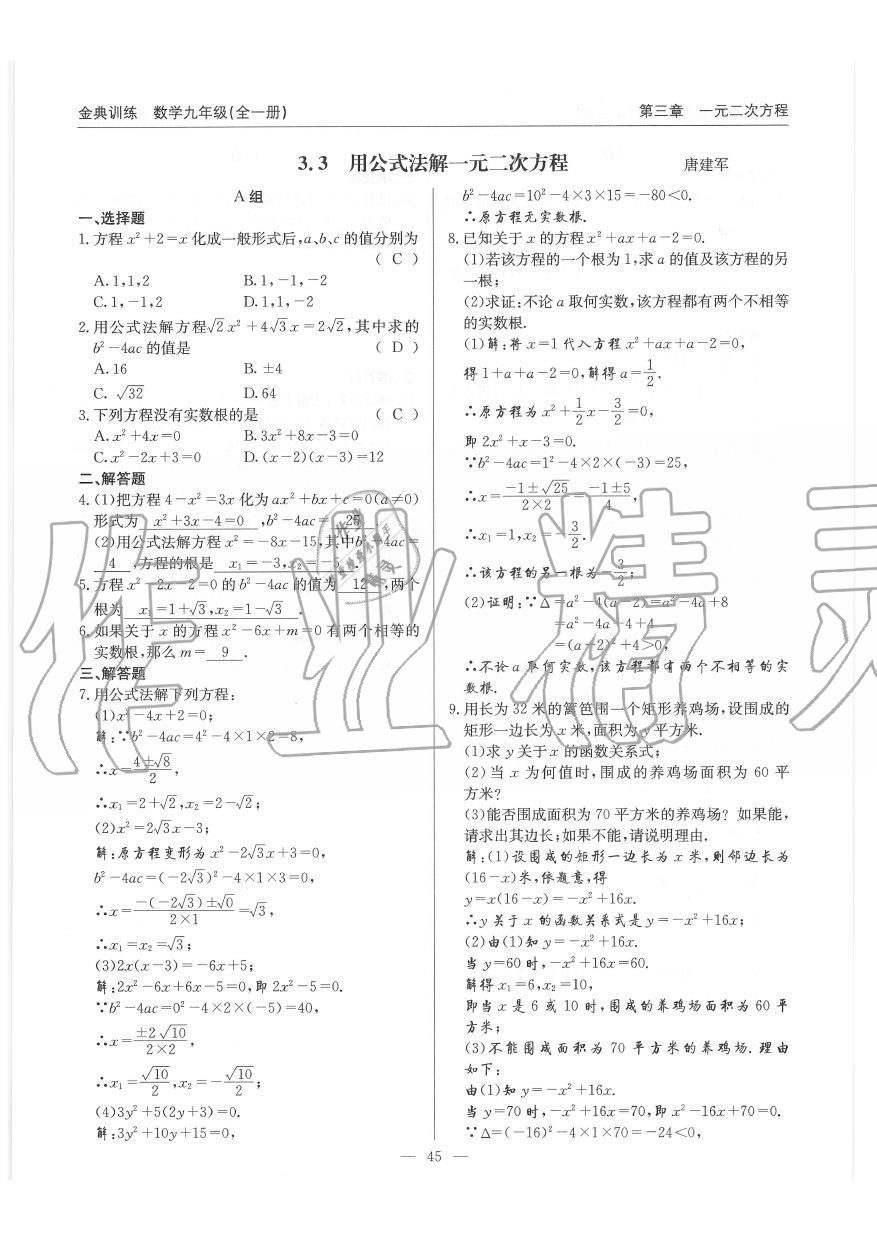 金典训练　数学九年级(全一册)
第三章　一元二次方程
3.3　用公式法解一元二次方程　唐建军
A 组
一、选择题
1.方程 x²+2=x 化成一般形式后,a、b、c 的值分别为
( C )
A.1,1,2　B.1,-1,-2
C.1,-1,2　D.1,1,-2
2.用公式法解方程√2x²+4√3x=2√2,其中求的
b²-4ac 的值是　( D )
A.16　B.±4
C.√32　D.64
3.下列方程没有实数根的是　( C )
A.x²+4x=0　B.3x²+8x-3=0
C.x²-2x+3=0　D.(x-2)(x-3)=12
二、解答题
4.(1)把方程 4-x²=3x 化为 ax²+bx+c=0(a≠0)
形式为 x²+3x-4=0 ,b²-4ac= 25
(2)用公式法解方程 x²=-8x-15,其中b²-4ac=
4 ,方程的根是 x₁=-3,x₂=-5 .
5.方程 x²-2x-2=0 的 b²-4ac 的值为 12 ,两个
根为 x₁=1+√3,x₂=1-√3 .
6.如果关于 x 的方程 x²-6x+m=0 有两个相等的
实数根,那么 m= 9 .
三、解答题
7.用公式法解下列方程:
(1)x²-4x+2=0;
解:∵b²-4ac=4²-4×1×2=8,
∴x=(4±√8)/2,
∴x₁=2+√2,x₂=2-√2;
(2)x²=2√3x-3;
解:原方程变形为 x²-2√3x+3=0,
b²-4ac=(-2√3)²-4×1×3=0,
∴x=(-(-2√3)±√0)/(2×1)=√3,
∴x₁=x₂=√3;
(3)2x(x-3)=-6x+5;
解:2x²-6x+6x-5=0,即 2x²-5=0.
∵b²-4ac=0²-4×2×(-5)=40,
∴x=(±2√10)/(2×2),
∴x₁=√10/2,x₂=-√10/2;
(4)3y²+5(2y+3)=0.
解:3y²+10y+15=0,
b²-4ac=10²-4×3×15=-80<0.
∴原方程无实数根.
8.已知关于 x 的方程 x²+ax+a-2=0.
(1)若该方程的一个根为 1,求 a 的值及该方程的另
一根;
(2)求证:不论 a 取何实数,该方程都有两个不相等
的实数根.
(1)解:将 x=1 代入方程 x²+ax+a-2=0,
得 1+a+a-2=0,解得 a=1/2.
∴原方程为 x²+1/2x-3/2=0,
即 2x²+x-3=0.
∵b²-4ac=1²-4×2×(-3)=25,
∴x=(-1±√25)/(2×2)=(-1±5)/4,
∴x₁=1,x₂=-3/2.
∴该方程的另一根为-3/2;
(2)证明:∵Δ=a²-4(a-2)=a²-4a+8
=a²-4a+4+4
=(a-2)²+4>0,
∴不论 a 取何实数,该方程都有两个不相等的实
数根.
9.用长为 32 米的篱笆围一个矩形养鸡场,设围成的
矩形一边长为 x 米,面积为 y 平方米.
(1)求 y 关于 x 的函数关系式;
(2)当 x 为何值时,围成的养鸡场面积为 60 平
方米?
(3)能否围成面积为 70 平方米的养鸡场? 如果能,
请求出其边长;如果不能,请说明理由.
解:(1)设围成的矩形一边长为 x 米,则邻边长为
(16-x)米,依题意,得
y=x(16-x)=-x²+16x.
∴y 关于 x 的函数关系式是 y=-x²+16x;
(2)由(1)知 y=-x²+16x.
当 y=60 时,-x²+16x=60.
解得 x₁=6,x₂=10,
即当 x 是 6 或 10 时,围成的养鸡场面积为 60 平
方米;
(3)不能围成面积为 70 平方米的养鸡场.理由
如下:
由(1)知 y=-x²+16x.
当 y=70 时,-x²+16x=70,即 x²-16x+70=0.
∵Δ=(-16)²-4×1×70=-24<0,
— 45 —
作业精灵